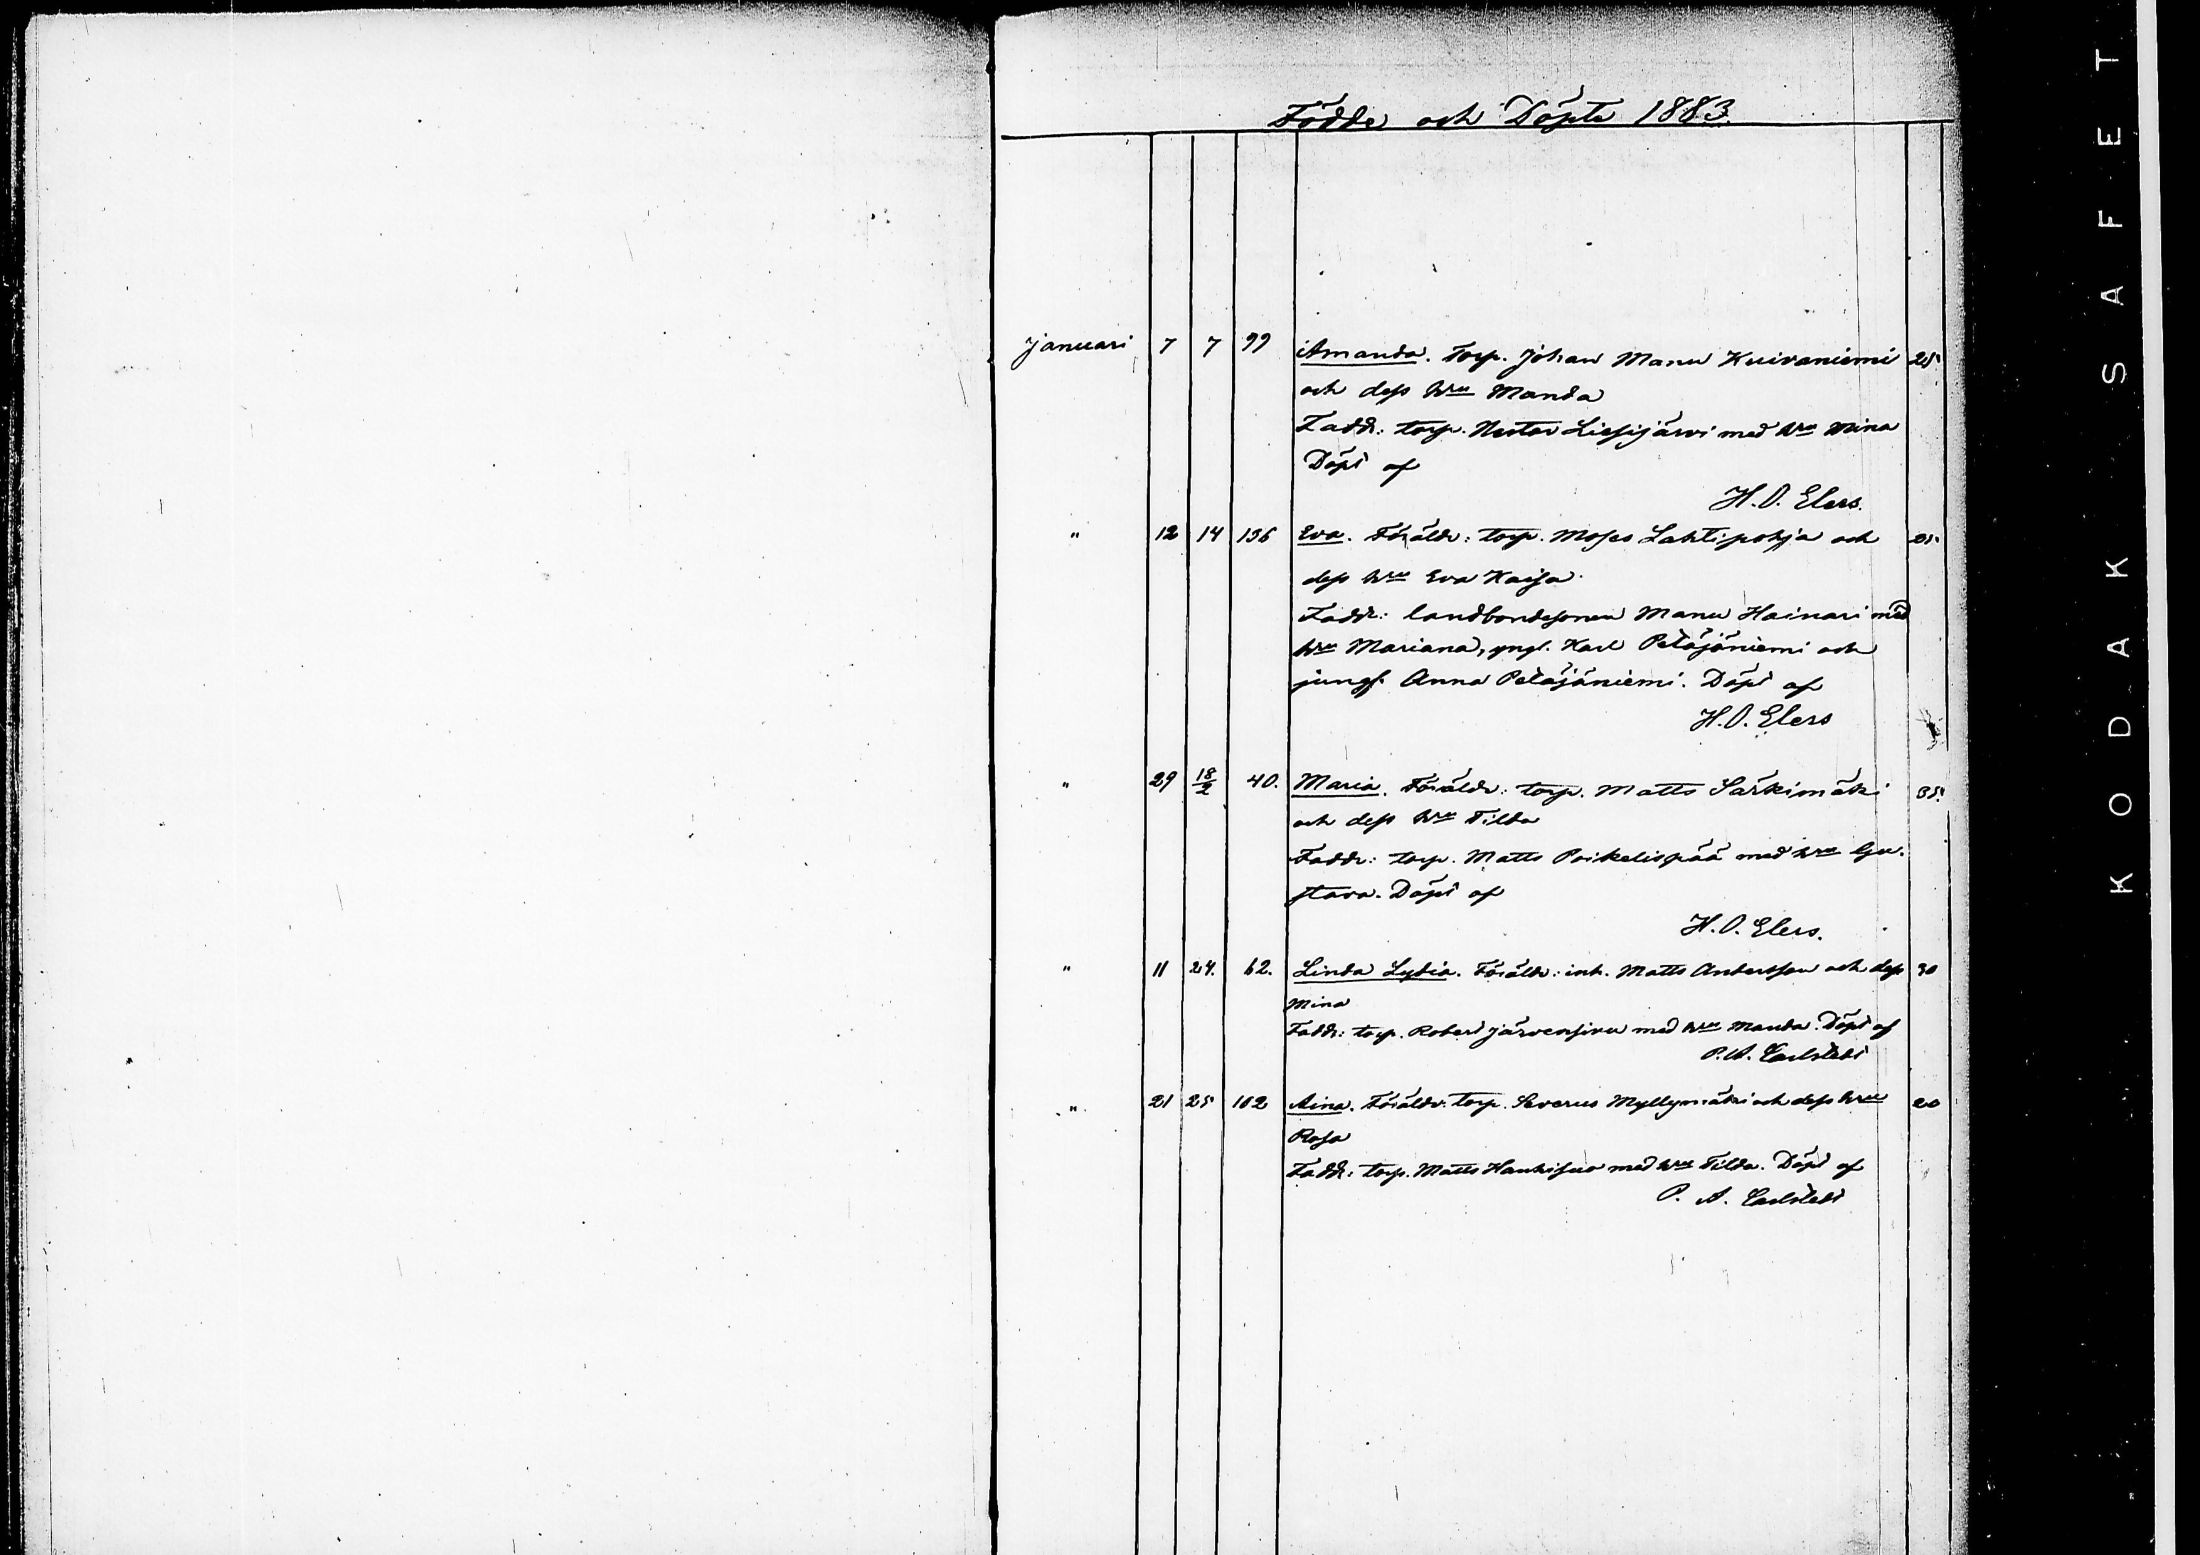 Födde och Döpte 1883.
Januari 7 7 99 Amanda. Torp. Johan Manu Kuivaniemi 25
och dess hru Manda
Faddr: torp. Nestor Liesijärvi med hru Mina
Döpt af
H. O. Elers.
" 12 14 136 Eva. Föräldr: torp. Moses Lahtipohja och
dess hru Eva Kaisa
Faddr: landbondesonen Manu Hainari med
hru Mariana, yngl. Karl Petäjäniemi och
jungf. Anna Petäjäniemi. Döpt af
H. O. Elers
" 29 18/2 40. Maria. Föräldr: torp. Matts Särkimäki 35.
och dess hru Tilda
Faddr: torp. Matts Poikelispää med hru Gu-
stava. Döpt af
H. O. Elers.
" 11 24. 62. Linda Lydia. Föräldr: inh. Matts Andersson och dess 30
Mina
Faddr: torp. Robert Järvensivu med hru Manda. Döpt af
P. A. Carlstedt
" 21 25 102 Aina. Föräldr. torp. Severus Myllymäki och dess hru 20
Rosa
Faddr: torp. Matts Haukisuo med hru Tilda. Döpt af
P. A. Carlstedt
KODAK SAFET